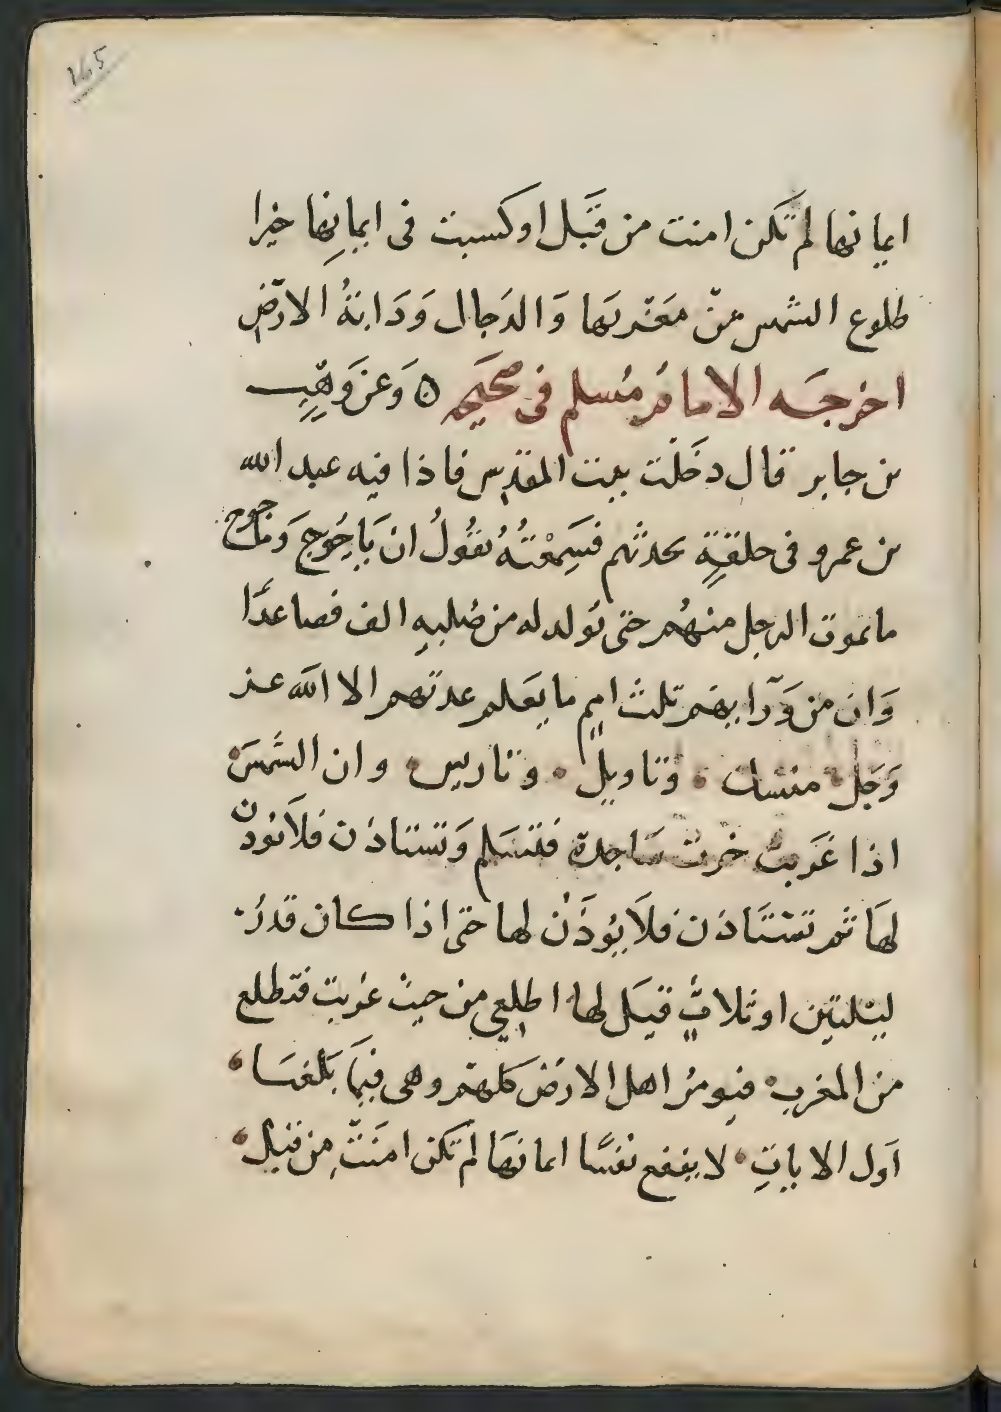 165
ايمانها لم تكن امنت من قَبل او كسبت فى ايمانِها خيرا
طلوع الشمس من مَغربَها وَالدَجال وَدَابةُ الارَضِ
اخرجَه الامامُ مُسلم فى صحَيحِه ٥ وَعن وَهَبِ
بن جابر قال دخَلت بيت المقدس فاذا فيه عبد الله
بن عمرو فى حلقةٍ يحدثهم فسَمِعْتهُ يقُولُ ان يَاجُوجَ وَماجوج
ما يموت الرجل منهُم حتى يُولد له من صُلبهِ الف فصاعدًا
وَان من وَرَايهم ثلث اممٍ ما يعَلم عدتهم الا الله عز
وَجَل منسك وتاويل وتاريس وان الشَّمسَ
اذا غَربت خرت سَاجدة فتسَلم وَتستاذن فلاَ يوذن
لهَا ثم تسَتاذن فلاَ يُوذَن لها حتى اذا كان قدرُ
ليْلتين او ثلاثٍ قيَل لها اطلِعى من حيث غرُبت فتطلع
من المغرب فيومنُ اهل الارضَ كلهم وهى فيمَا بَلغنَا
اول الاياتِ لا ينفع نفسًا ايمانهَا لم تكن امنَتْ من قبل